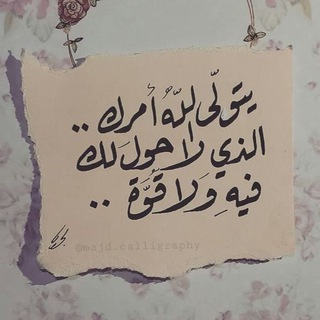 يتولّى اللّهُ أمرك ..
الذي لا حول لك
فيهِ وَلا قُوَّة ..
@majd.calligraphy